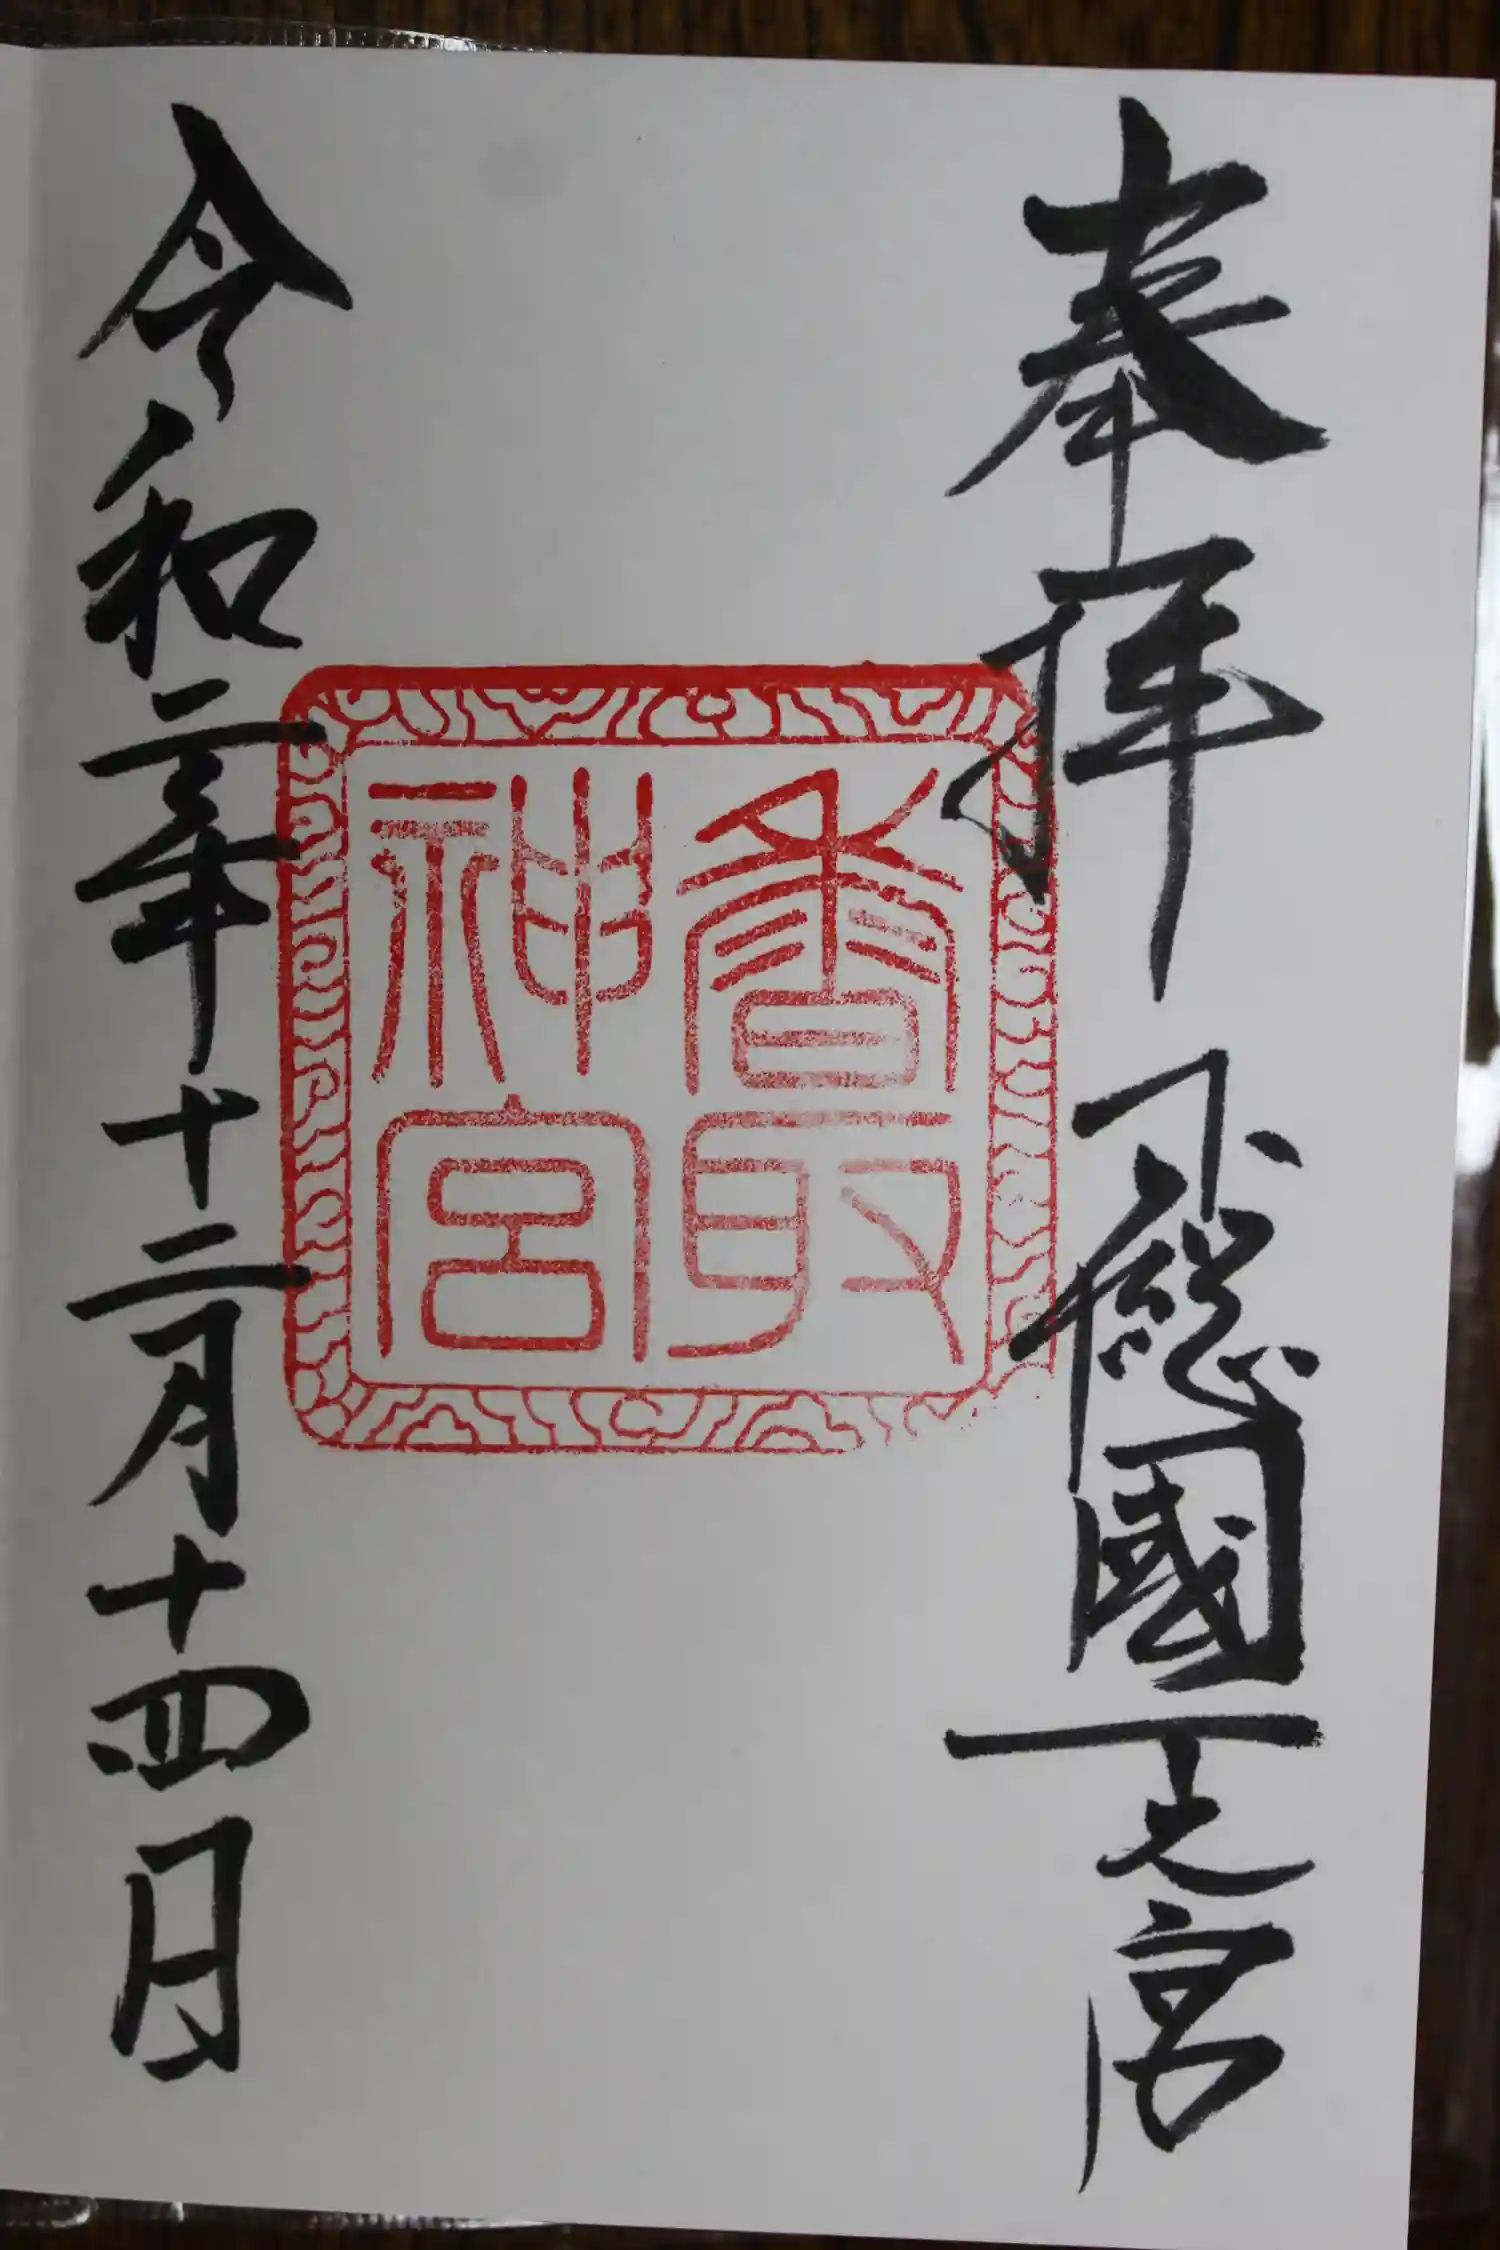 奉拝 下総國一之宮
香取
神宮
令和二年十二月十四日